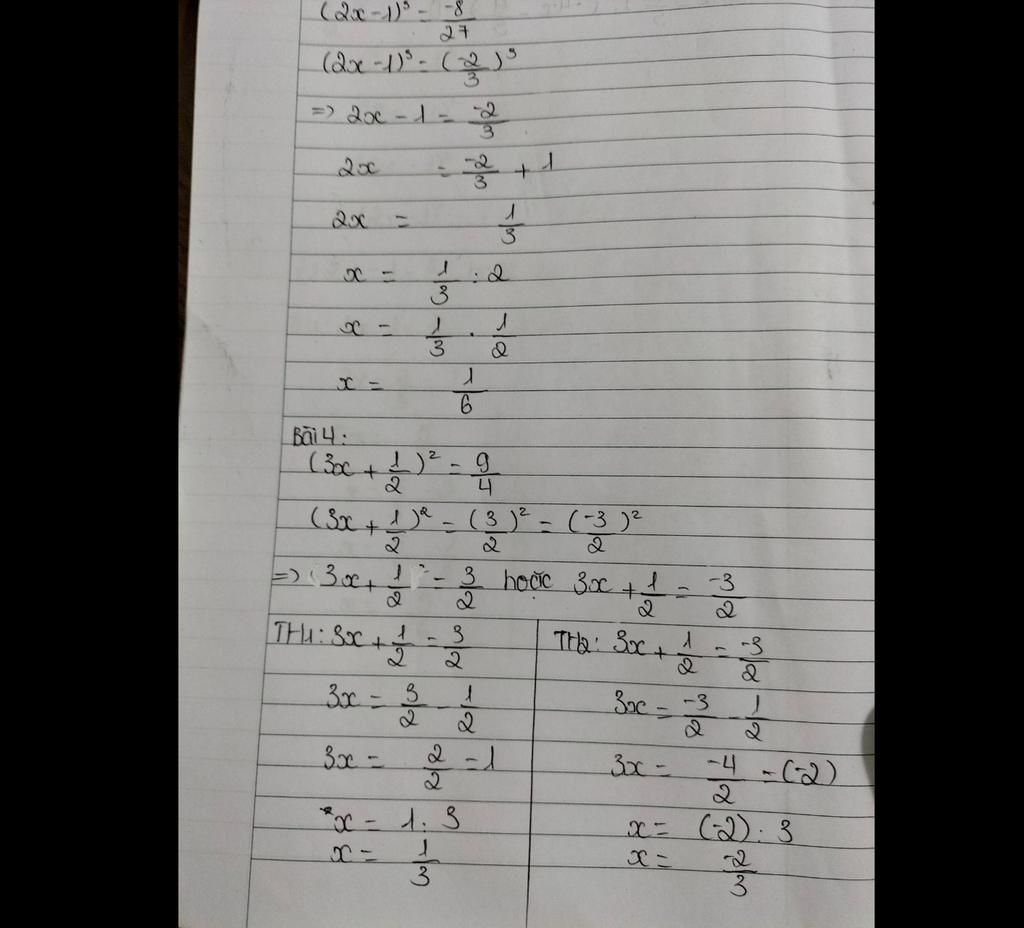 (2x-1)³ = -8/27
(2x-1)³ = (-2/3)³
=> 2x - 1 = -2/3
2x = -2/3 + 1
2x = 1/3
x = 1/3 : 2
x = 1/3 . 1/2
x = 1/6
Bài 4:
(3x + 1/2)² = 9/4
(3x + 1/2)² = (3/2)² = (-3/2)²
=> 3x + 1/2 = 3/2 hoặc 3x + 1/2 = -3/2
TH1: 3x + 1/2 = 3/2
3x = 3/2 - 1/2
3x = 2/2 = 1
x = 1 : 3
x = 1/3
TH2: 3x + 1/2 = -3/2
3x = -3/2 - 1/2
3x = -4/2 = (-2)
x = (-2) : 3
x = -2/3